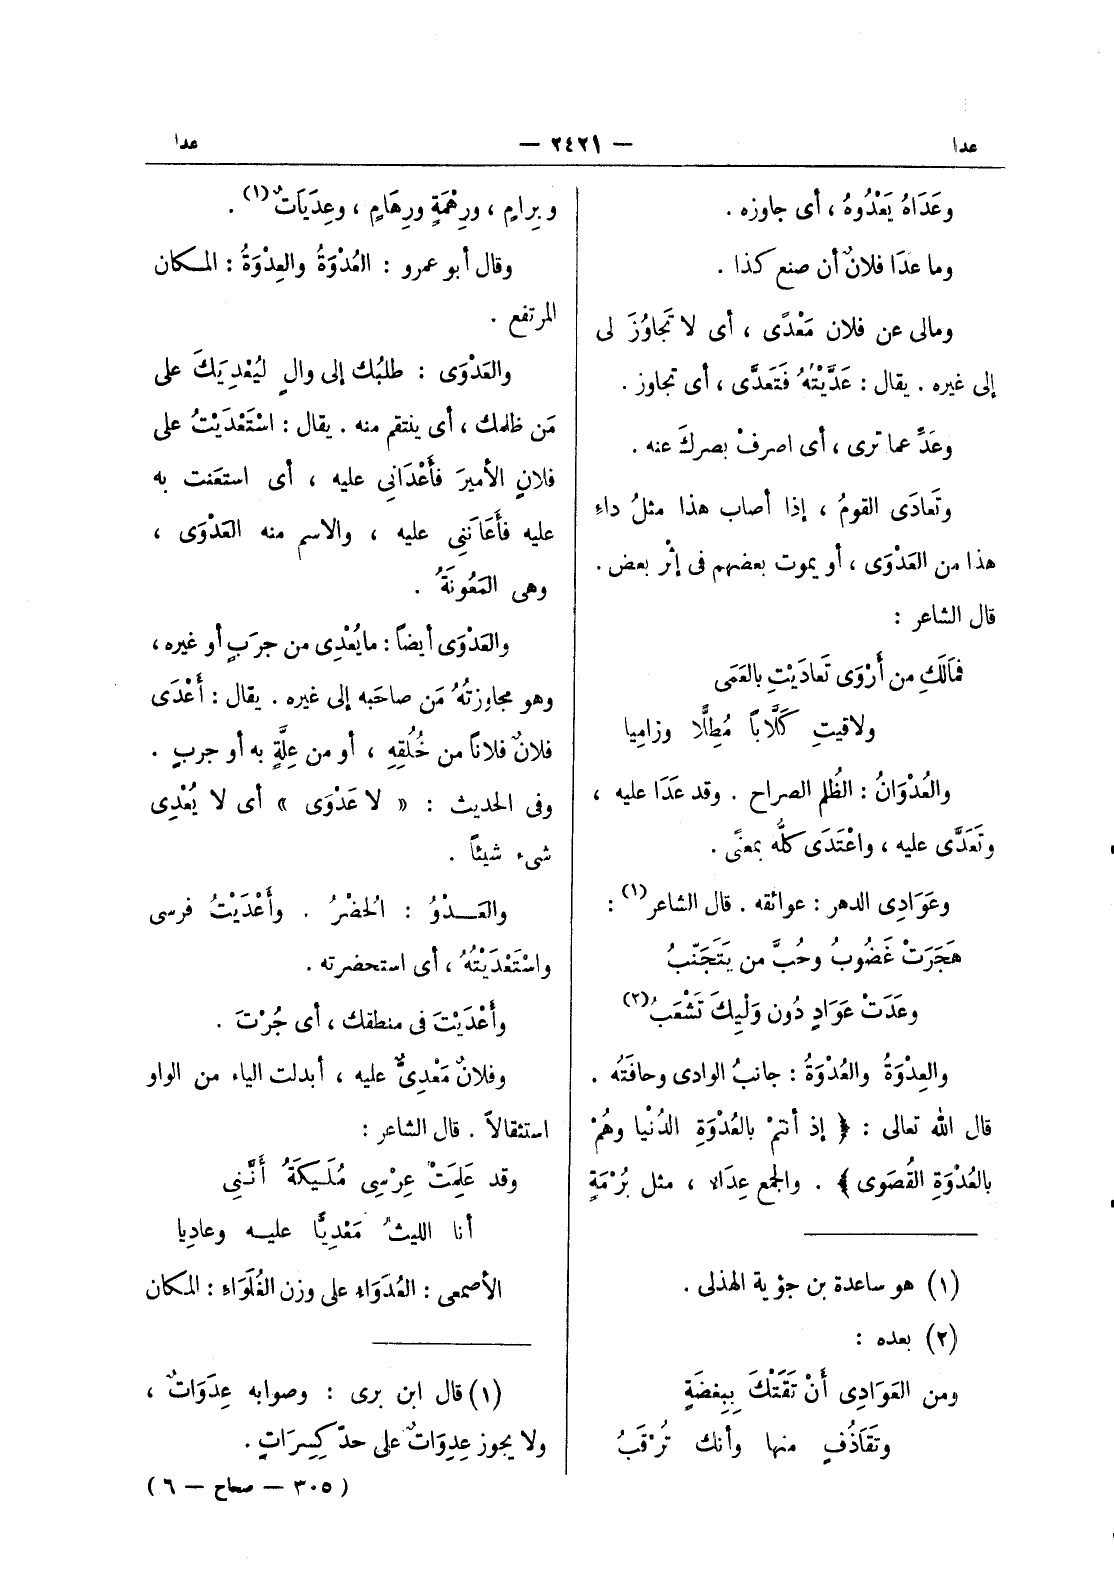 عدا — ٢٤٢١ — عدا
وعَدَاهُ يَعْدُوهُ ، أى جاوزه .
وما عدَا فلانٌ أن صنع كذا .
ومالى عن فلان مَعْدًى ، أى لا تَجاوُزَ لى
إلى غيره . يقال : عَدَّيْتُهُ فَتَعَدَّى ، أى تجاوز .
وعَدِّ عما ترى ، أى اصرفْ بصركَ عنه .
وتَعادَى القومُ ، إذا أصاب هذا مثلُ داءِ
هذا من العَدْوَى ، أو يموت بعضهم فى إثْر بعض .
قال الشاعر :
فمَالَكِ من أَرْوَى تَعادَيْتِ بالعَمَى
ولاقيتِ كَلَّاباً مُطِلًّا وزامِيا
والعُدْوَانُ : الظُلم الصراح . وقد عدَا عليه ،
وتَعَدَّى عليه ، واعْتَدَى كلُّه بمعنًى .
وعَوَادِى الدهر : عوائقه . قال الشاعر (١) :
هَجَرَتْ غَضُوبُ وحُبَّ من يتَجَنّبُ
وعَدَتْ عوَادٍ دُون وَلْيِكَ تَشْعَبُ (٢)
والعِدْوَةُ والعُدْوَةُ : جانبُ الوادى وحافَتُه .
قال الله تعالى : ﴿ إذ أنتمْ بالعُدْوَةِ الدُنْيا وهُمْ
بالعُدْوَةِ القُصَوى ﴾ . والجمع عِدَاء ، مثل بُرْمَةٍ
(١) هو ساعدة بن جؤية الهذلى .
(٢) بعده :
ومن العَوَادِى أَنْ تَقَتْكَ بِبِغضَةٍ
وتَقَاذُفٍ منها وأنك تُرْقَبُ
وبِرامٍ ، ورِهْمَةٍ ورِهَامٍ ، وعِدَيَاتٌ (١) .
وقال أبو عمرو : العُدْوَةُ والعِدْوَةُ : المكان
المرتفع .
والعَدْوَى : طلبُك إلى والٍ لِيُعْدِيَكَ على
مَن ظلمك ، أى ينتقم منه . يقال : اسْتَعْدَيْتُ على
فلانٍ الأميرَ فأَعْدَانِى عليه ، أى استعَنت به
عليه فأَعَانَنِى عليه ، والاسم منه العَدْوَى ،
وهى المَعُونَةُ .
والعَدْوَى أيضاً : ما يُعْدِى من جرَبٍ أو غيره ،
وهو مجاوزتُهُ مَن صاحَبه إلى غيره . يقال : أَعْدَى
فلانٌ فلاناً من خُلُقِهِ ، أو من عِلَّةٍ به أو جربٍ .
وفى الحديث : « لا عَدْوَى » أى لا يُعْدِى
شىء شيئاً .
والعَدْوُ : الحُضْرُ . وأَعْدَيْتُ فرسى
واسْتَعْدَيْتُهُ ، أى استحضرته .
وأَعْدَيْتَ فى منطقك ، أى جُرْتَ .
وفلانٌ مَعْدِىٌّ عليه ، أبدلت الياء من الواو
استثقالاً . قال الشاعر :
وقد عَلِمَتْ عِرْسِى مُلَيكَةُ أَنَّنِى
أنا الليثُ مَعْدِيًّا عليه وعادِيا
الأصمعى : العُدَوَاء على وزن الغُلَوَاءِ : المكان
(١) قال ابن برى : وصوابه عِدَوَاتٌ ،
ولا يجوز عِدِوَاتٌ على حدّ كِسِرَاتٍ .
( ٣٠٥ — صحاح — ٦ )